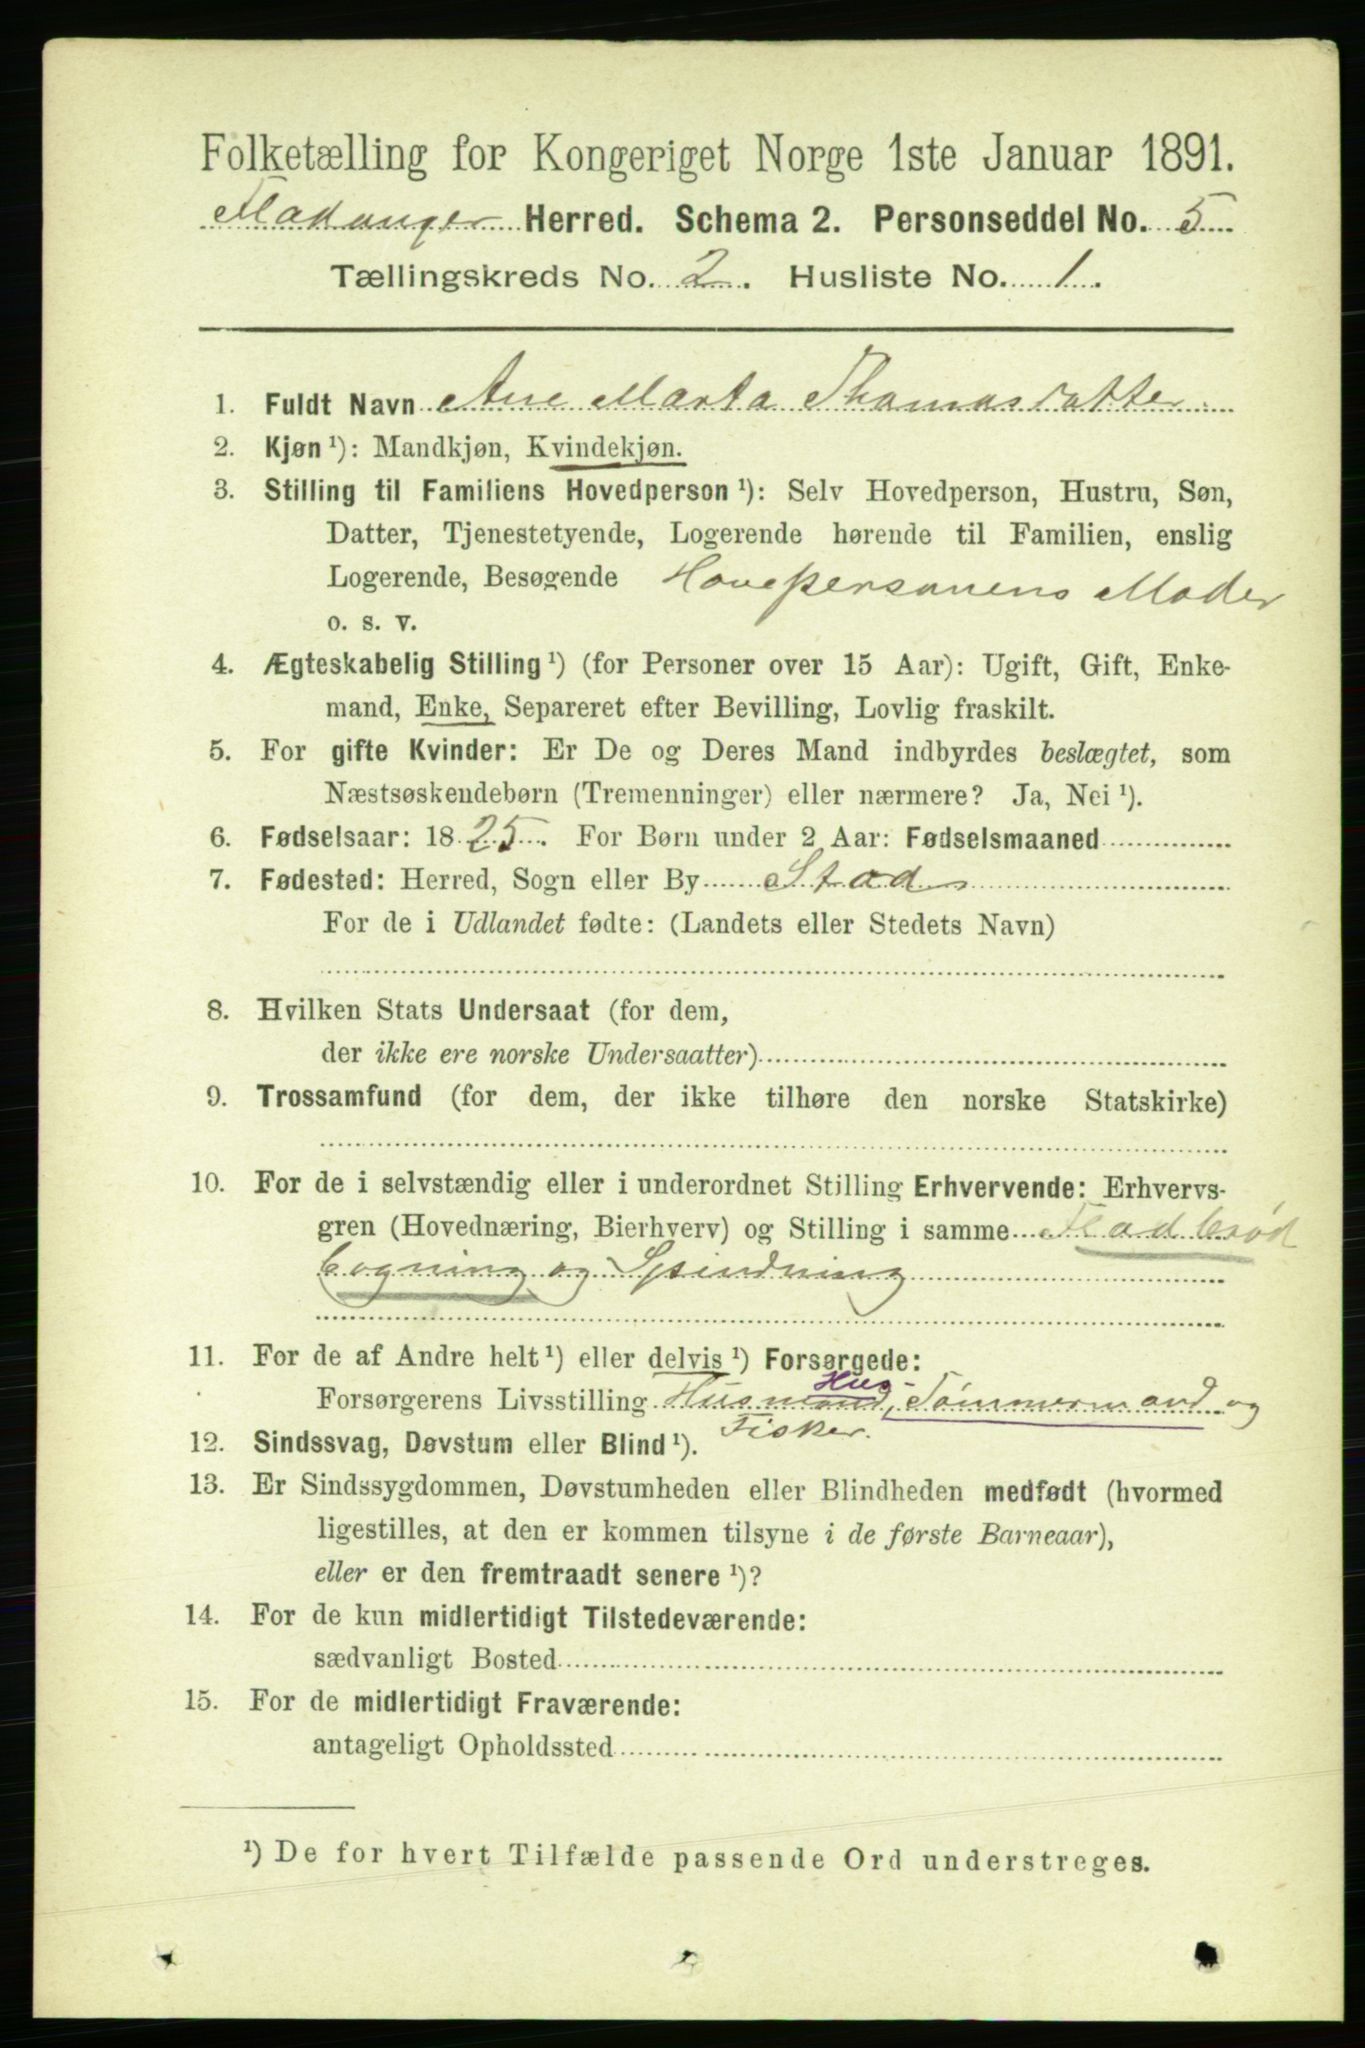 Folketælling for Kongeriget Norge 1ste Januar 1891.
Fladanger Herred. Schema 2. Personseddel No. 5
Tællingskreds No. 2. Husliste No. 1.
1. Fuldt Navn Ane Marta Thomasdatter
2. Kjøn ¹): Mandkjøn, Kvindekjøn.
3. Stilling til Familiens Hovedperson ¹): Selv Hovedperson, Hustru, Søn,
Datter, Tjenestetyende, Logerende hørende til Familien, enslig
Logerende, Besøgende Hovepersonens Moder
o. s. v.
4. Ægteskabelig Stilling ¹) (for Personer over 15 Aar): Ugift, Gift, Enke-
mand, Enke, Separeret efter Bevilling, Lovlig fraskilt.
5. For gifte Kvinder: Er De og Deres Mand indbyrdes beslægtet, som
Næstsøskendebørn (Tremenninger) eller nærmere? Ja, Nei ¹).
6. Fødselsaar: 1825. For Børn under 2 Aar: Fødselsmaaned
7. Fødested: Herred, Sogn eller By Stod
For de i Udlandet fødte: (Landets eller Stedets Navn)
8. Hvilken Stats Undersaat (for dem,
der ikke ere norske Undersaatter)
9. Trossamfund (for dem, der ikke tilhøre den norske Statskirke)
10. For de i selvstændig eller i underordnet Stilling Erhvervende: Erhvervs-
gren (Hovednæring, Bierhverv) og Stilling i samme Fladbrød
bagning og Spindning
11. For de af Andre helt ¹) eller delvis ¹) Forsørgede:
Hus-
Forsørgerens Livsstilling Husmand, Tömmermand og
Fisker.
12. Sindssvag, Døvstum eller Blind ¹).
13. Er Sindssygdommen, Døvstumheden eller Blindheden medfødt (hvormed
ligestilles, at den er kommen tilsyne i de første Barneaar),
eller er den fremtraadt senere ¹)?
14. For de kun midlertidigt Tilstedeværende:
sædvanligt Bosted
15. For de midlertidigt Fraværende:
antageligt Opholdssted
¹) De for hvert Tilfælde passende Ord understreges.